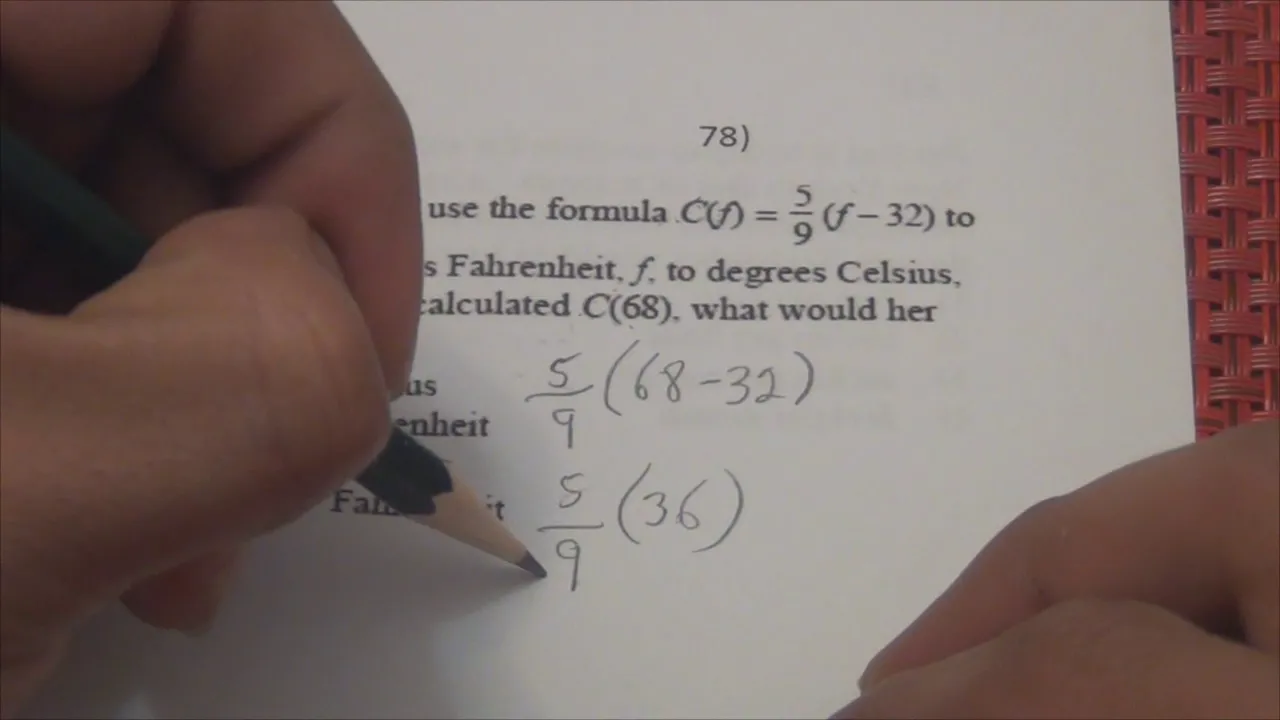 78)
use the formula C(f) = 5/9 (f – 32) to
Fahrenheit, f, to degrees Celsius,
calculated C(68), what would her
5/9 (68 – 32)
5/9 (36)